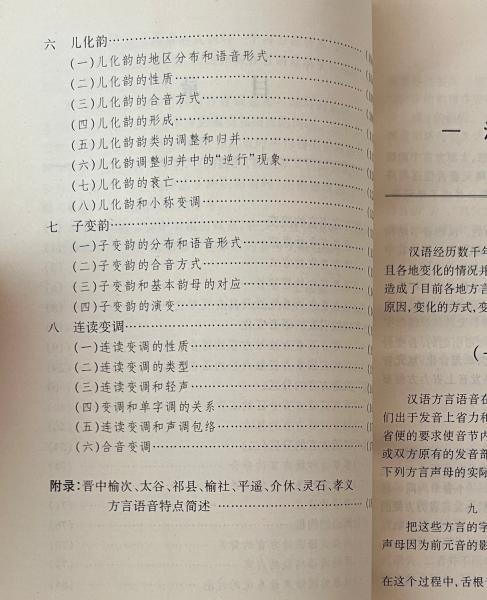 六 儿化韵
(一)儿化韵的地区分布和语音形式
(二)儿化韵的性质
(三)儿化韵的合音方式
(四)儿化韵的形成
(五)儿化韵韵类的调整和归并
(六)儿化韵调整归并中的“逆行”现象
(七)儿化韵的衰亡
(八)儿化韵和小称变调
七 子变韵
(一)子变韵的分布和语音形式
(二)子变韵的合音方式
(三)子变韵和基本韵母的对应
(四)子变韵的演变
八 连读变调
(一)连读变调的性质
(二)连读变调的类型
(三)连读变调和轻声
(四)变调和单字调的关系
(五)连读变调和声调包络
(六)合音变调
附录:晋中榆次、太谷、祁县、榆社、平遥、介休、灵石、孝义
方言语音特点简述
一
汉语经历数千年
且各地变化的情况并
造成了目前各地方言
原因,变化的方式,变
(一
汉语方言语音在
们出于发音上省力和
省便的要求使音节内
或双方原有的发音部
下列方言声母的实际
九
把这些方言的字
声母因为前元音的影
在这个过程中,舌根